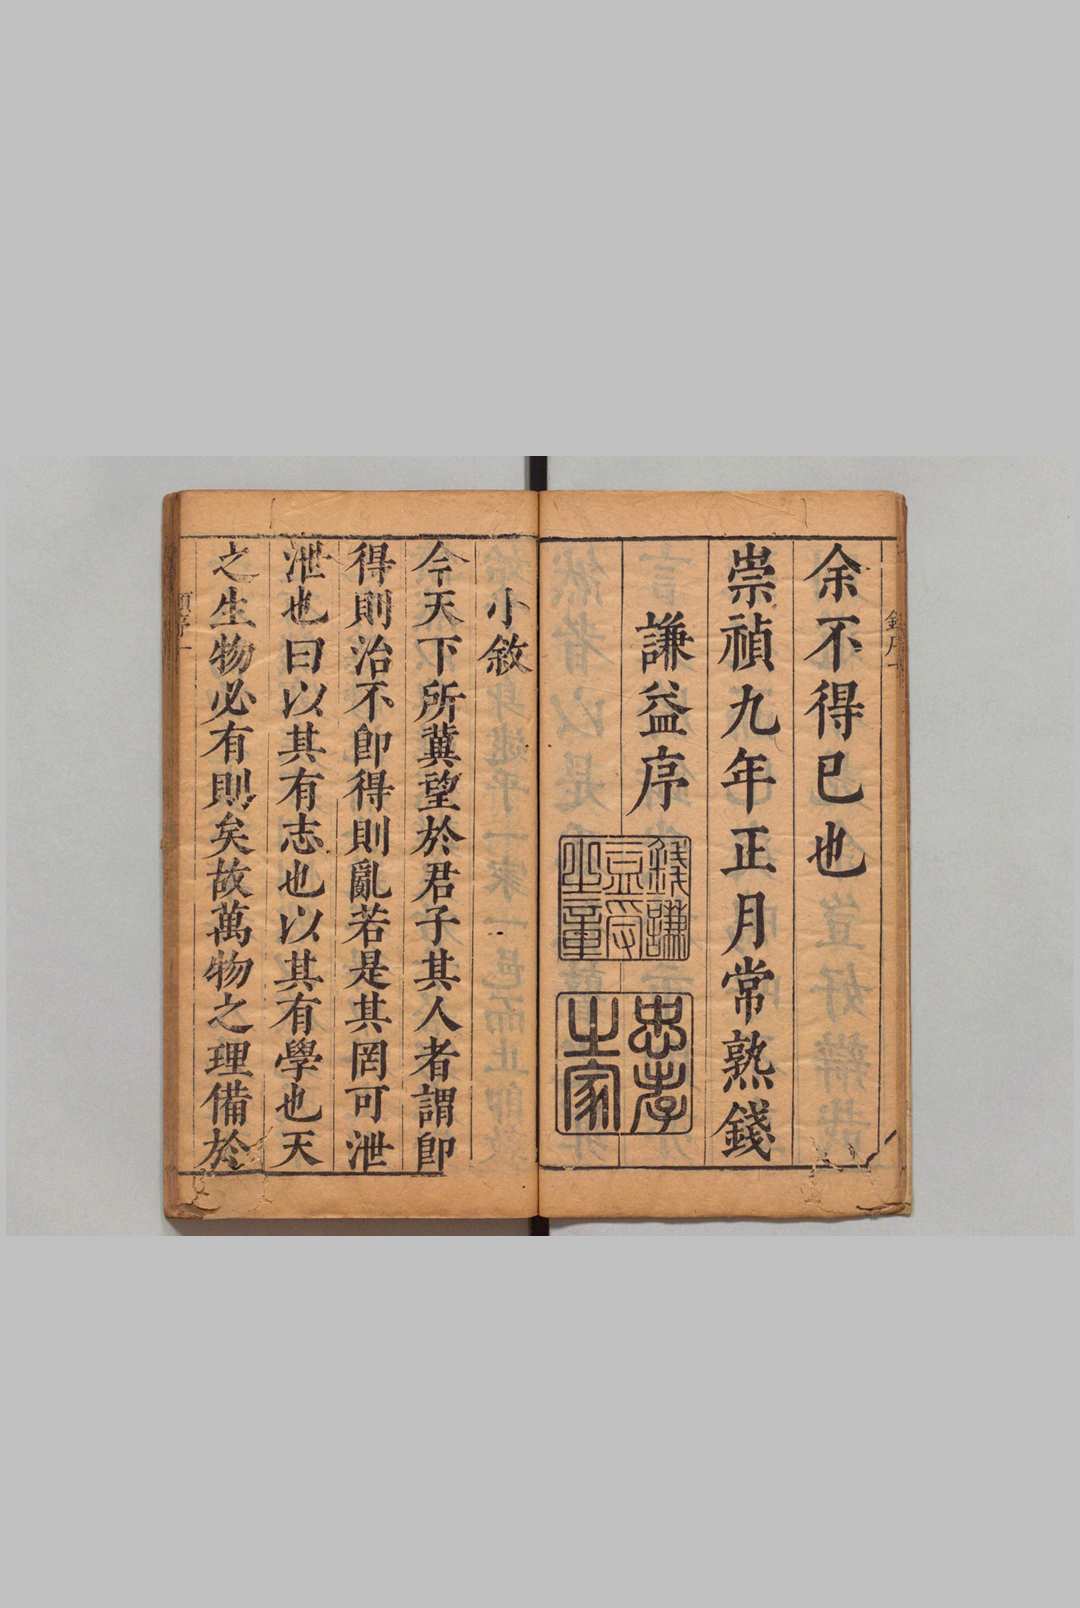 余不得已也
崇禎九年正月常熟錢
謙益序
錢謙
忠孝
之家
錢序
小敘
今天下所冀望於君子其人者謂卽
得則治不卽得則亂若是其罔可泄
泄也曰以其有志也以其有學也天
之生物必有則矣故萬物之理備於